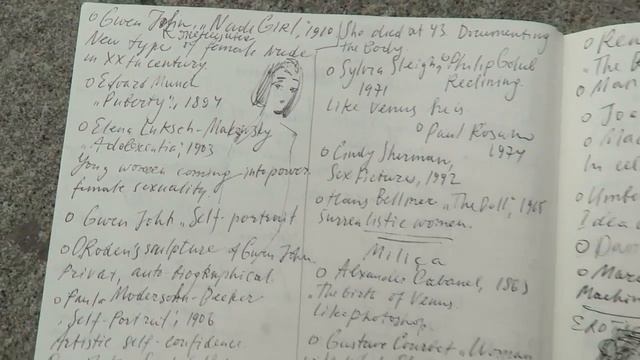 o Gwen John, "Nude Girl", 1910
New type of female nude
in XXth century
o Edvard Munch
"Puberty", 1894
o Elena Luksch-Makowsky
"Adolescentia", 1903
Yong women coming into power
female sexuality.
o Gwen John "Self-portrait
o O.Roden's sculpture of Gwen John.
Privat, auto-biographical.
o Paula Modersohn-Becker
"Self-Portrait", 1906
Artistic self-confidence.
She died at 43. Documenting
the Body
o Sylvia Sleigh, "Philip Golub
Reclining
1971
like Venus
o Paul Rosano
1974
o Cindy Sherman,
Sex Pictures, 1992
o Hans Bellmer "The Doll", 1965
Surrealistic women.
Milica
o Alexander Cabanel, 1863
"The Birth of Venus.
Like photoshop.
o Gustave Courbet "Woman
o
o Mar
o Joa
o
In ce
o Umbe
Idea o
o Da
o Mar
Machin